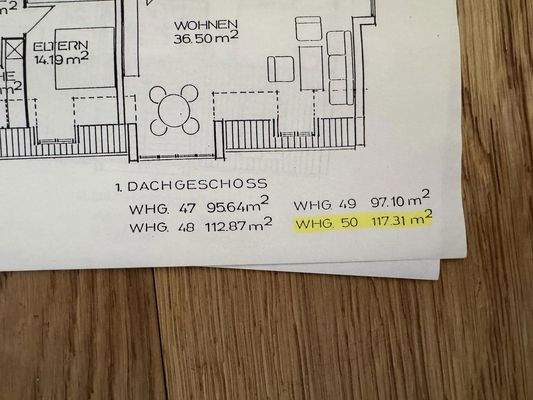 WOHNEN
36.50 m²
ELTERN
14.19 m²
HE
m²
1. DACHGESCHOSS
WHG. 47 95.64 m²
WHG. 49 97.10 m²
WHG. 48 112.87 m²
WHG. 50 117.31 m²